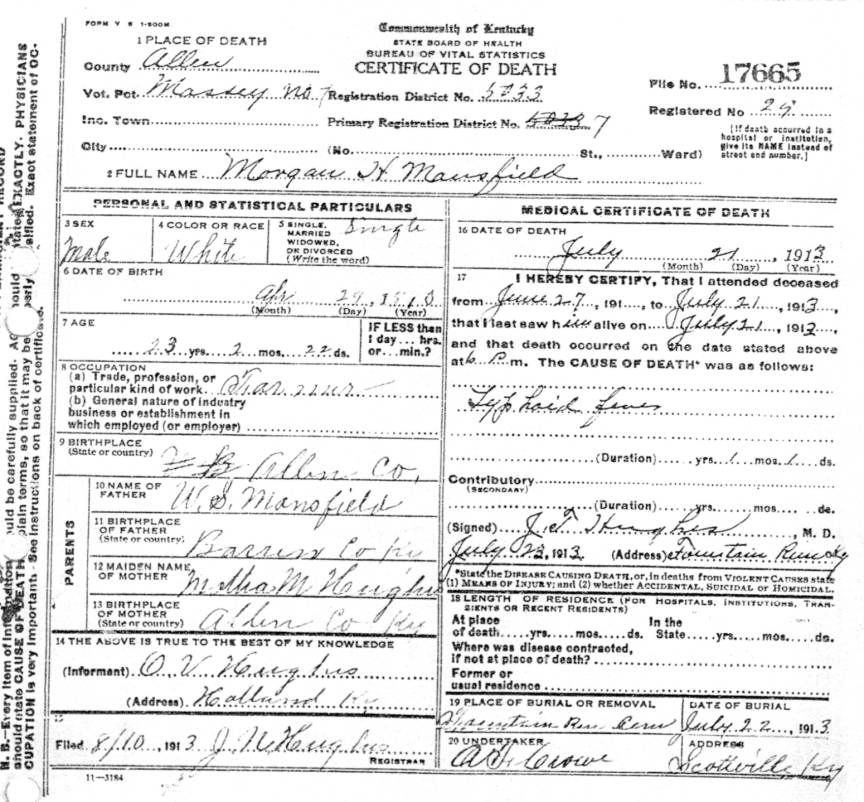 FORM V S 1-500M
Commonwealth of Kentucky
STATE BOARD OF HEALTH
BUREAU OF VITAL STATISTICS
CERTIFICATE OF DEATH
1 PLACE OF DEATH
County Allen
Vot. Pct. Massey No. 7 Registration District No. 5033
File No. 17665
Inc. Town Primary Registration District No. 7
Registered No 29
City (No. St., Ward)
[If death occurred in a hospital or institution, give its NAME instead of street and number.]
2 FULL NAME Morgan H Mansfield
PERSONAL AND STATISTICAL PARTICULARS
3 SEX
Male
4 COLOR OR RACE
White
5 SINGLE, MARRIED WIDOWED, OR DIVORCED (Write the word)
Single
6 DATE OF BIRTH
Apr 29, 18
(Month) (Day) (Year)
7 AGE
23 yrs. 2 mos. 22 ds.
IF LESS than 1 day... hrs. or... min.?
8 OCCUPATION
(a) Trade, profession, or particular kind of work Farmer
(b) General nature of industry business or establishment in which employed (or employer)
9 BIRTHPLACE
(State or country)
Allen Co,
PARENTS
10 NAME OF FATHER
W. S. Mansfield
11 BIRTHPLACE OF FATHER
(State or country)
Barren Co Ky
12 MAIDEN NAME OF MOTHER
M Hughes
13 BIRTHPLACE OF MOTHER
(State or country)
Allen Co Ky
14 THE ABOVE IS TRUE TO THE BEST OF MY KNOWLEDGE
(Informant) O. V. Hughes
(Address) Holland Ky
15
Filed 8/10, 1913 J. N. Hughes
REGISTRAR
11-3184
MEDICAL CERTIFICATE OF DEATH
16 DATE OF DEATH
July 21, 1913
(Month) (Day) (Year)
17 I HEREBY CERTIFY, That I attended deceased
from June 27, 191 , to July 21, 1913,
that I last saw him alive on July 21, 1913,
and that death occurred on the date stated above
at 6 P. m. The CAUSE OF DEATH* was as follows:
Typhoid fever
(Duration) yrs. 1 mos. 1 ds.
Contributory
(SECONDARY)
(Duration) yrs. mos. de.
(Signed) J. T Hughes, M. D.
July 23, 1913, (Address) Fountain Run Ky
*State the DISEASE CAUSING DEATH, or, in deaths from VIOLENT CAUSES state
(1) MEANS OF INJURY; and (2) whether ACCIDENTAL, SUICIDAL or HOMICIDAL.
18 LENGTH OF RESIDENCE (FOR HOSPITALS, INSTITUTIONS, TRANSIENTS OR RECENT RESIDENTS)
At place of death yrs. mos. ds. In the State yrs. mos. ds.
Where was disease contracted, if not at place of death?
Former or usual residence
19 PLACE OF BURIAL OR REMOVAL
Fountain Run Cem
DATE OF BURIAL
July 22, 1913
20 UNDERTAKER
Crowe
ADDRESS
Scottville, Ky